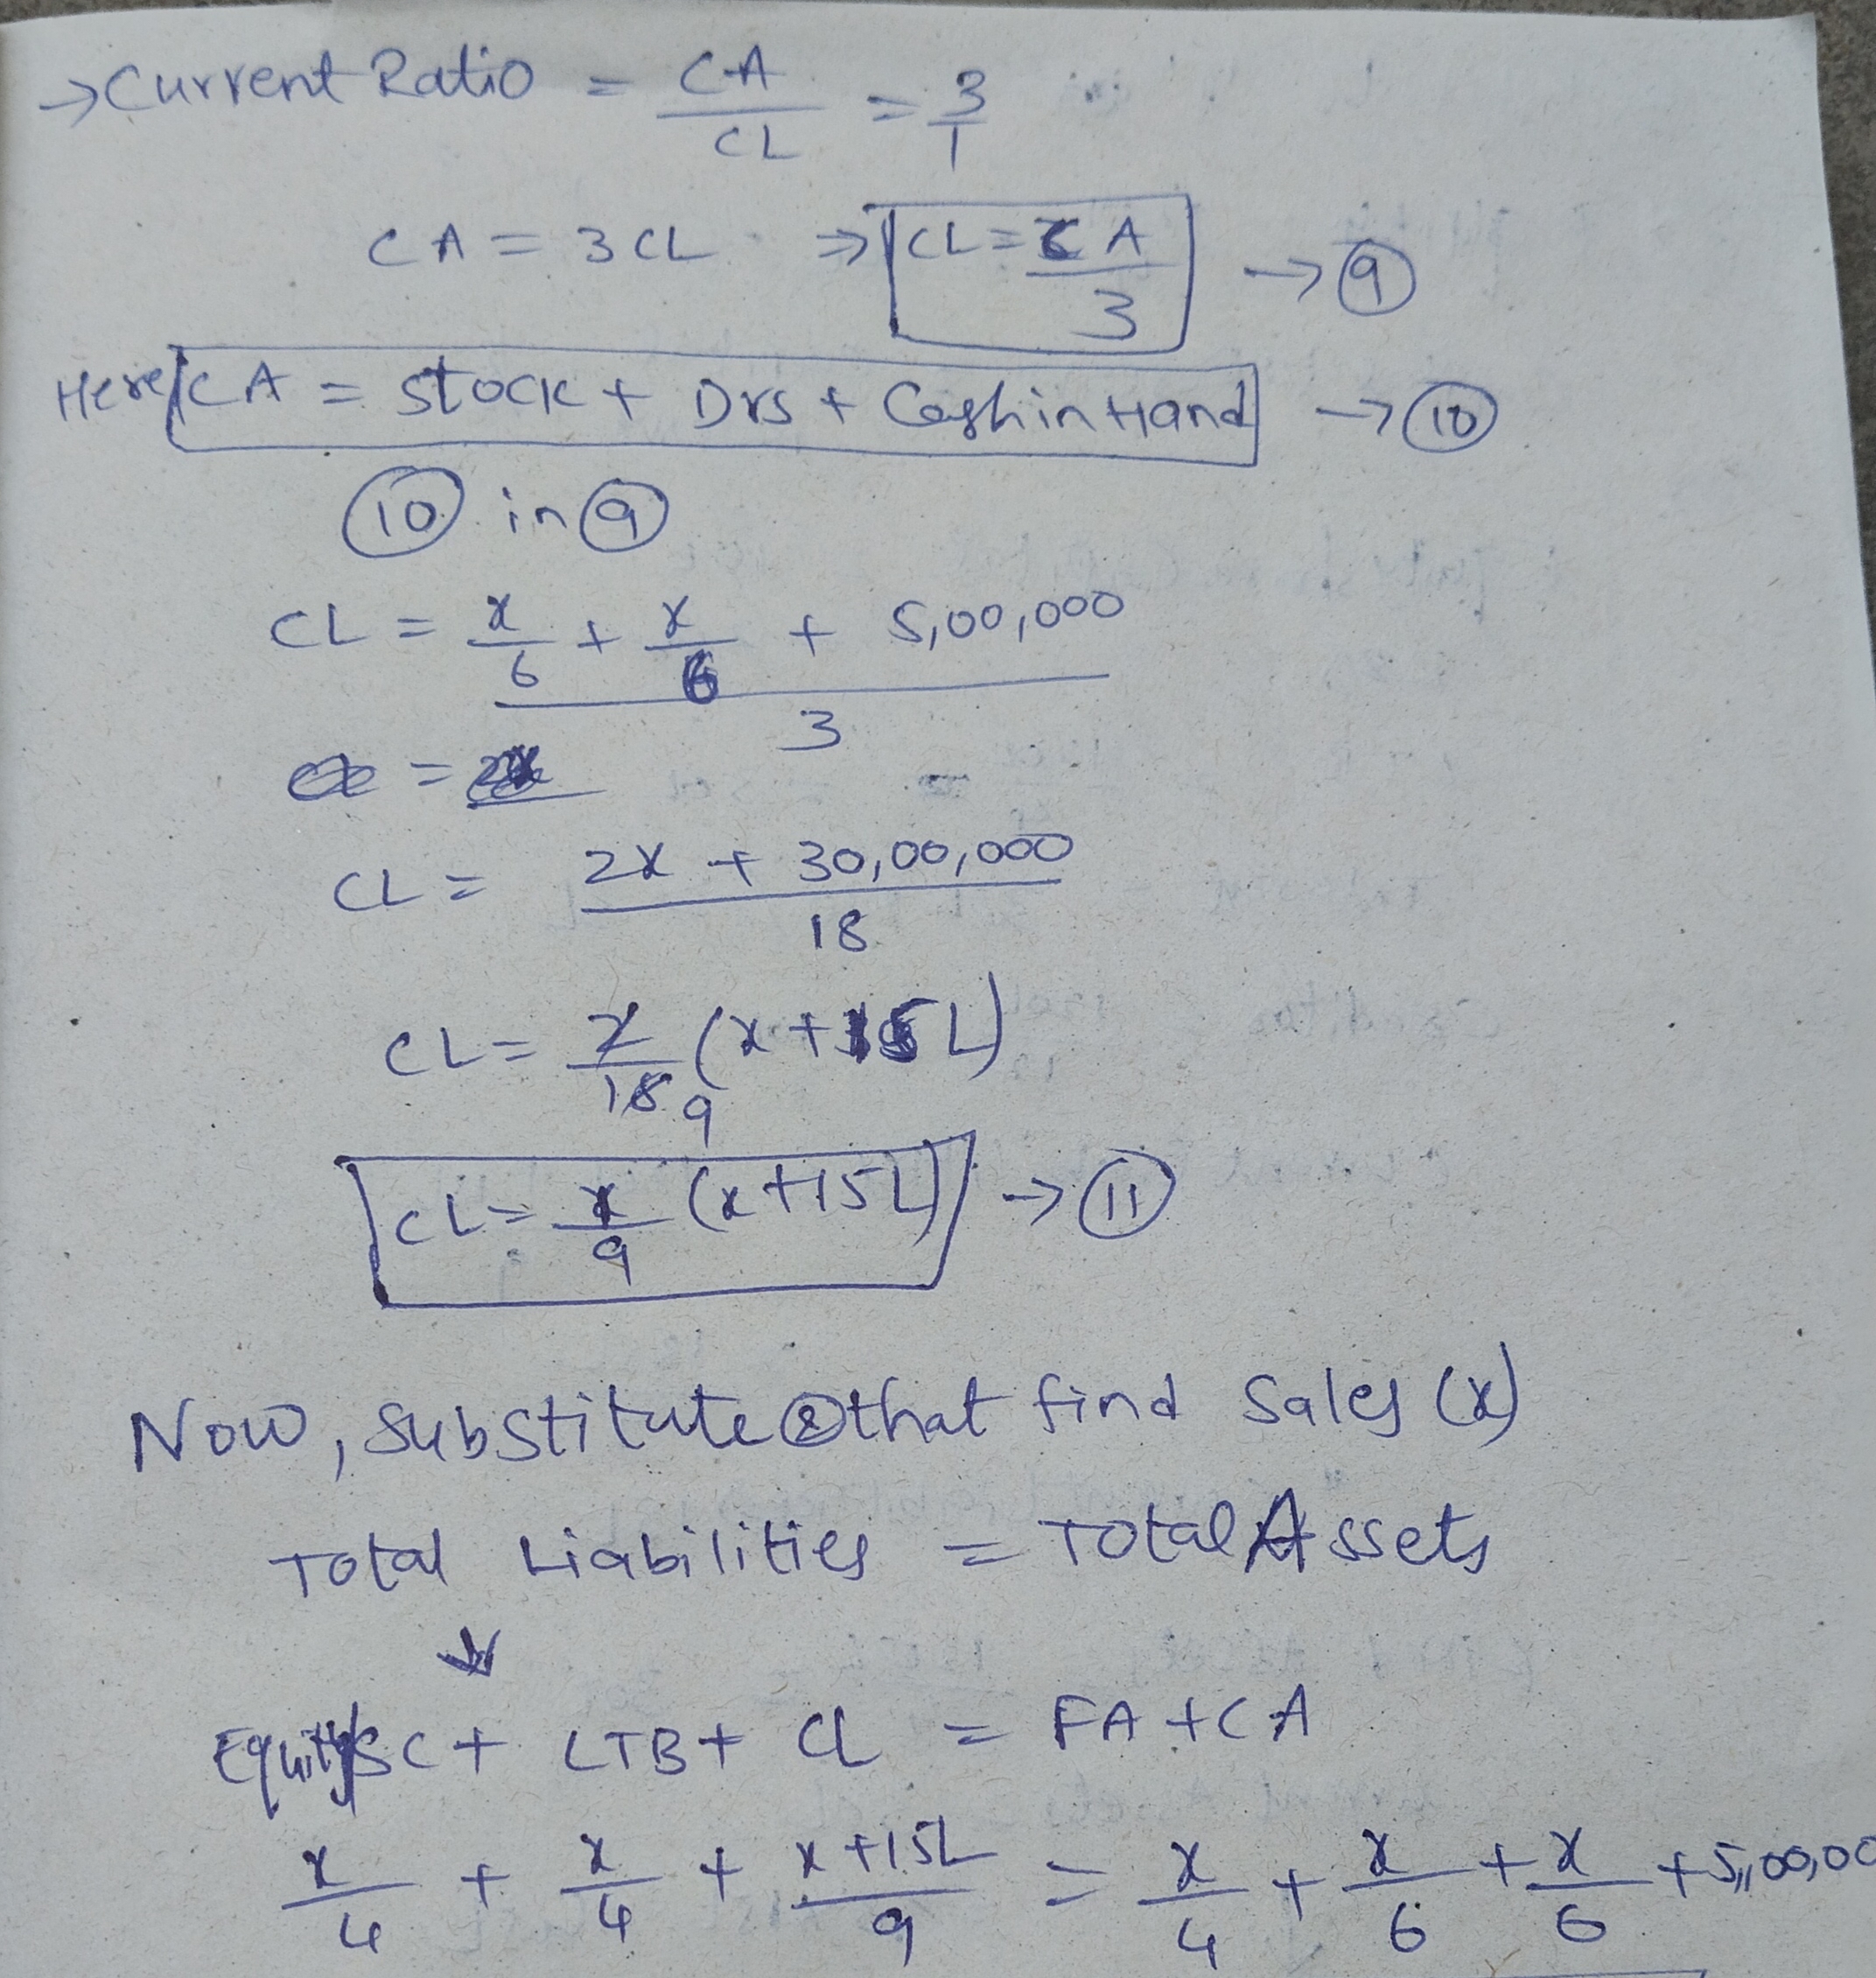 → Current Ratio = CA/CL = 3/1
CA = 3CL ⇒ CL = CA/3 → ⑨
Here, CA = Stock + Drs + Cash in Hand → ⑩
⑩ in ⑨
CL = x/6 + x/6 + 5,00,000 / 3
CL = 2x + 30,00,000 / 18
CL = 2/18 9 (x + 15L)
CL = x/9 (x+15L) → ⑪
Now, Substitute that find Sales (x)
Total Liabilities = Total Assets
↓
Equity SC + LTB + CL = FA + CA
x/4 + x/4 + x+15L/9 = x/4 + x/6 + x/6 + 5,00,00